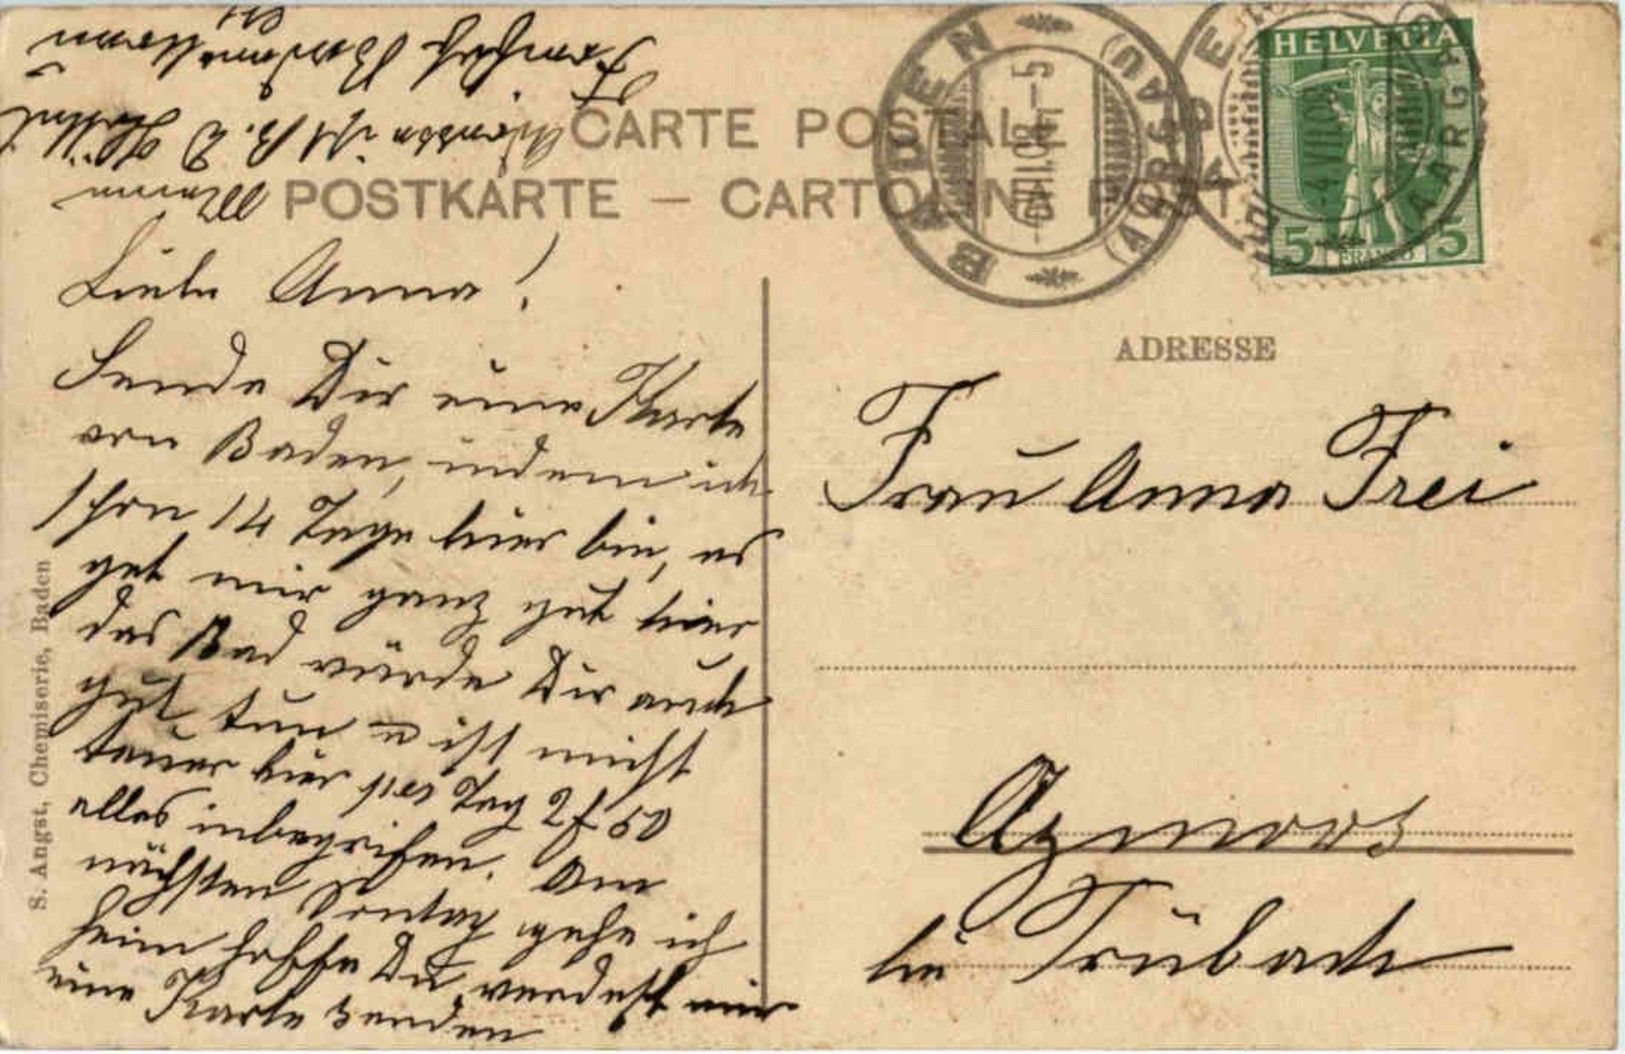 CARTE POSTALE
POSTKARTE — CARTOLINA POST
BADEN
(AARGAU)
VII.08.–5
HELVETIA
5 FRANCO 5
ADRESSE
Liebe Anna!
Sende Dir eine Karte
von Baden, indem ich
schon 14 Tage hier bin, es
get mir ganz gut hier
das Bad würde Dir auch
gut tun u ist nicht
teuer hier per Tag 2 f 50
alles inbegrifen. Am
nächsten Sontag gehe ich
heim hoffe Du werdest mir
eine Karte senden
Frau Anna Frei
Azmoos
bei Trübach
S. Angst, Chemiserie, Baden